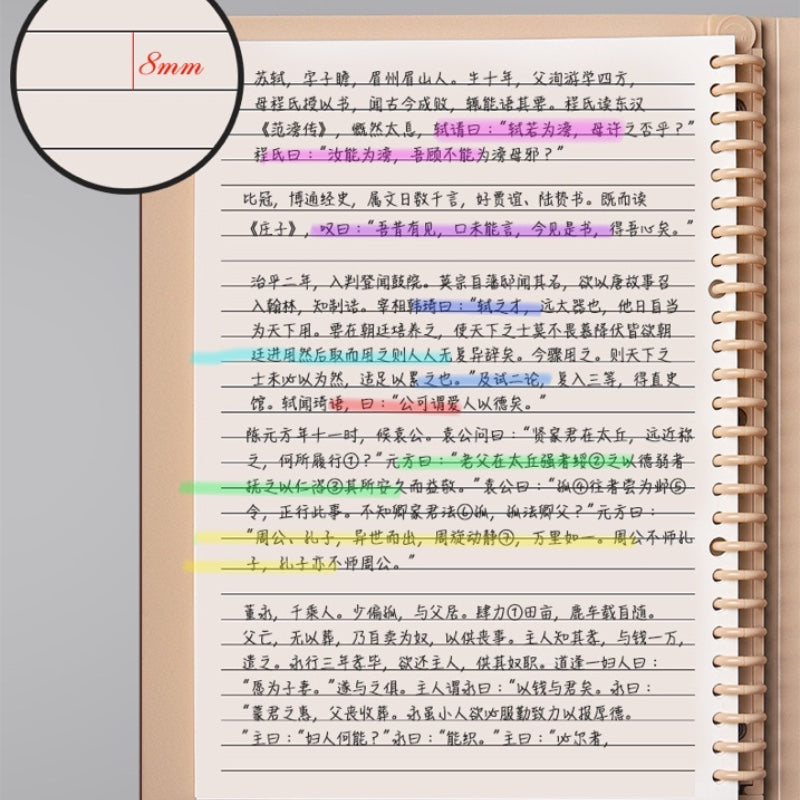 8mm
苏轼，字子瞻，眉州眉山人。生十年，父洵游学四方，
母程氏授以书，闻古今成败，辄能语其要。程氏读东汉
《范滂传》，慨然太息，轼请曰：“轼若为滂，母许之否乎？”
程氏曰：“汝能为滂，吾顾不能为滂母邪？”
比冠，博通经史，属文日数千言，好贾谊、陆贽书。既而读
《庄子》，叹曰：“吾昔有见，口未能言，今见是书，得吾心矣。”
治平二年，入判登闻鼓院。英宗自藩邸闻其名，欲以唐故事召
入翰林，知制诰。宰相韩琦曰：“轼之才，远大器也，他日自当
为天下用。要在朝廷培养之，使天下之士莫不畏慕降伏皆欲朝
廷进用然后取而用之则人人无复异辞矣。今骤用之。则天下之
士未必以为然，适足以累之也。”及试二论，复入三等，得直史
馆。轼闻琦语，曰：“公可谓爱人以德矣。”
陈元方年十一时，候袁公。袁公问曰：“贤家君在太丘，远近称
之，何所履行①？”元方曰：“老父在太丘强者绥②之以德弱者
抚之以仁恣③其所安久而益敬。”袁公曰：“孤④往者尝为邺⑤
令，正行此事。不知卿家君法⑥孤，孤法卿父？”元方曰：
“周公、孔子，异世而出，周旋动静⑦，万里如一。周公不师孔
子，孔子亦不师周公。”
董永，千乘人。少偏孤，与父居。肆力①田亩，鹿车载自随。
父亡，无以葬，乃自卖为奴，以供丧事。主人知其孝，与钱一万，
遣之。永行三年孝毕，欲还主人，供其奴职。道逢一妇人曰：
“愿为子妻。”遂与之俱。主人谓永曰：“以钱与君矣。永曰：
“蒙君之惠，父丧收葬。永虽小人欲必服勤致力以报厚德。
“主曰：“妇人何能？”永曰：“能织。”主曰：“必尔者，